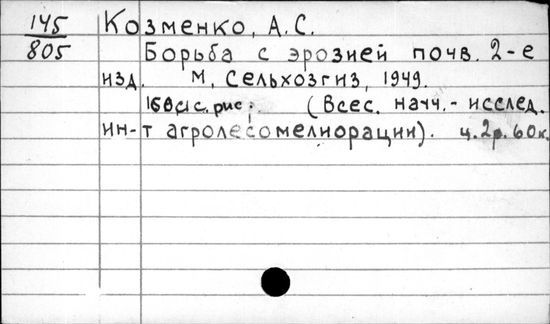 145
805
Козменко, А.С.
Борьба с эрозией почв. 2-е
изд. М, Сельхозгиз, 1949.
с. рис. (Всес. науч.-исслед.
ин-т агролесомелиорации). ц. 2р. 60к.